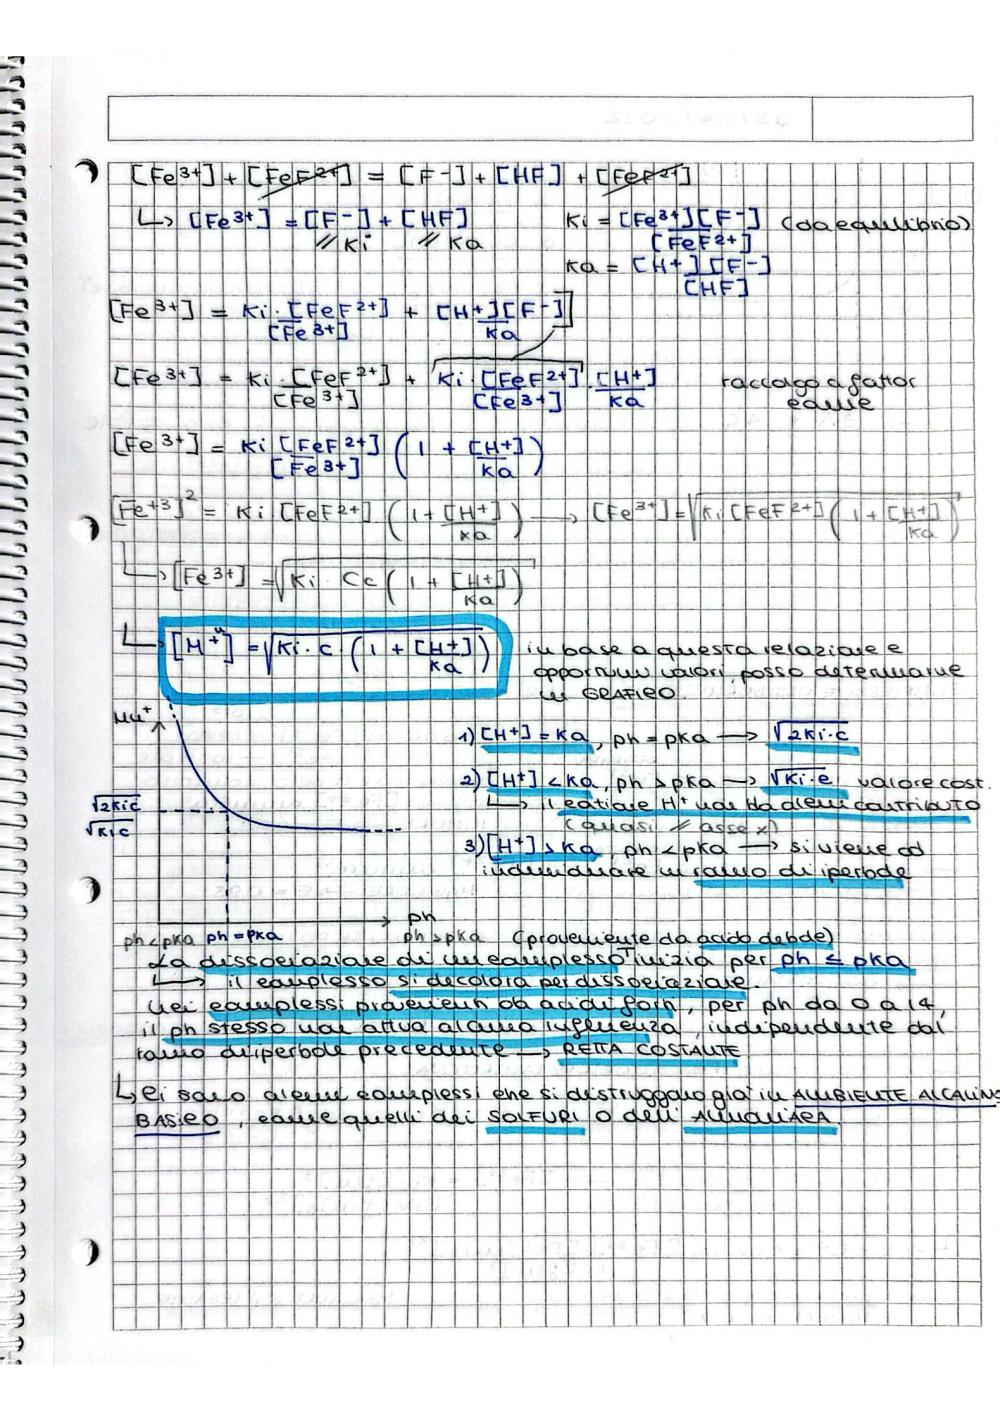 [Fe³⁺] + [FeF²⁺] = [F⁻] + [HF] + [FeF²⁺]
↳ [Fe³⁺] = [F⁻] + [HF]
// Ki // Ka
Ki = [Fe³⁺][F⁻] / [FeF²⁺] (da equilibrio)
Ka = [H⁺][F⁻] / [HF]
[Fe³⁺] = Ki · [FeF²⁺] / [Fe³⁺] + [H⁺][F⁻] / Ka
[Fe³⁺] = Ki · [FeF²⁺] / [Fe³⁺] + Ki · [FeF²⁺] / [Fe³⁺] · [H⁺] / Ka raccolgo a fattor
comune
[Fe³⁺] = Ki [FeF²⁺] / [Fe³⁺] (1 + [H⁺] / Ka)
[Fe⁺³]² = Ki [FeF²⁺] (1 + [H⁺] / Ka) → [Fe³⁺] = √Ki [FeF²⁺] (1 + [H⁺] / Ka)
↳ [Fe³⁺] = √Ki · Cc (1 + [H⁺] / Ka)
↳ [M⁺ⁿ] = √Ki · C · (1 + [H⁺] / Ka)
in base a questa relazione e
opportuni valori, posso determinarne
un GRAFICO.
Mⁿ⁺
√2KiC
√KiC
ph
ph < pKa ph = pKa ph > pKa
1) [H⁺] = Ka, ph = pKa → √2Ki·C
2) [H⁺] < Ka, ph > pKa → √Ki·C valore cost.
↳ il catione H⁺ non ha alcun contributo
(quasi // asse x)
3) [H⁺] > Ka, ph < pKa → si viene ad
individuare un ramo di iperbole
(proveniente da acido debole)
La dissociazione di un complesso inizia per ph ≤ pKa
↳ il complesso si decolora per dissociazione.
Nei complessi provenienti da acidi forti, per ph da 0 a 14,
il ph stesso non attua alcuna influenza, indipendente dal
ramo di iperbole precedente → RETTA COSTANTE
↳ Ci sono alcuni complessi che si distruggono già in AMBIENTE ALCALINO
BASICO, come quelli dei SOLFURI o dell'AMMONIACA.